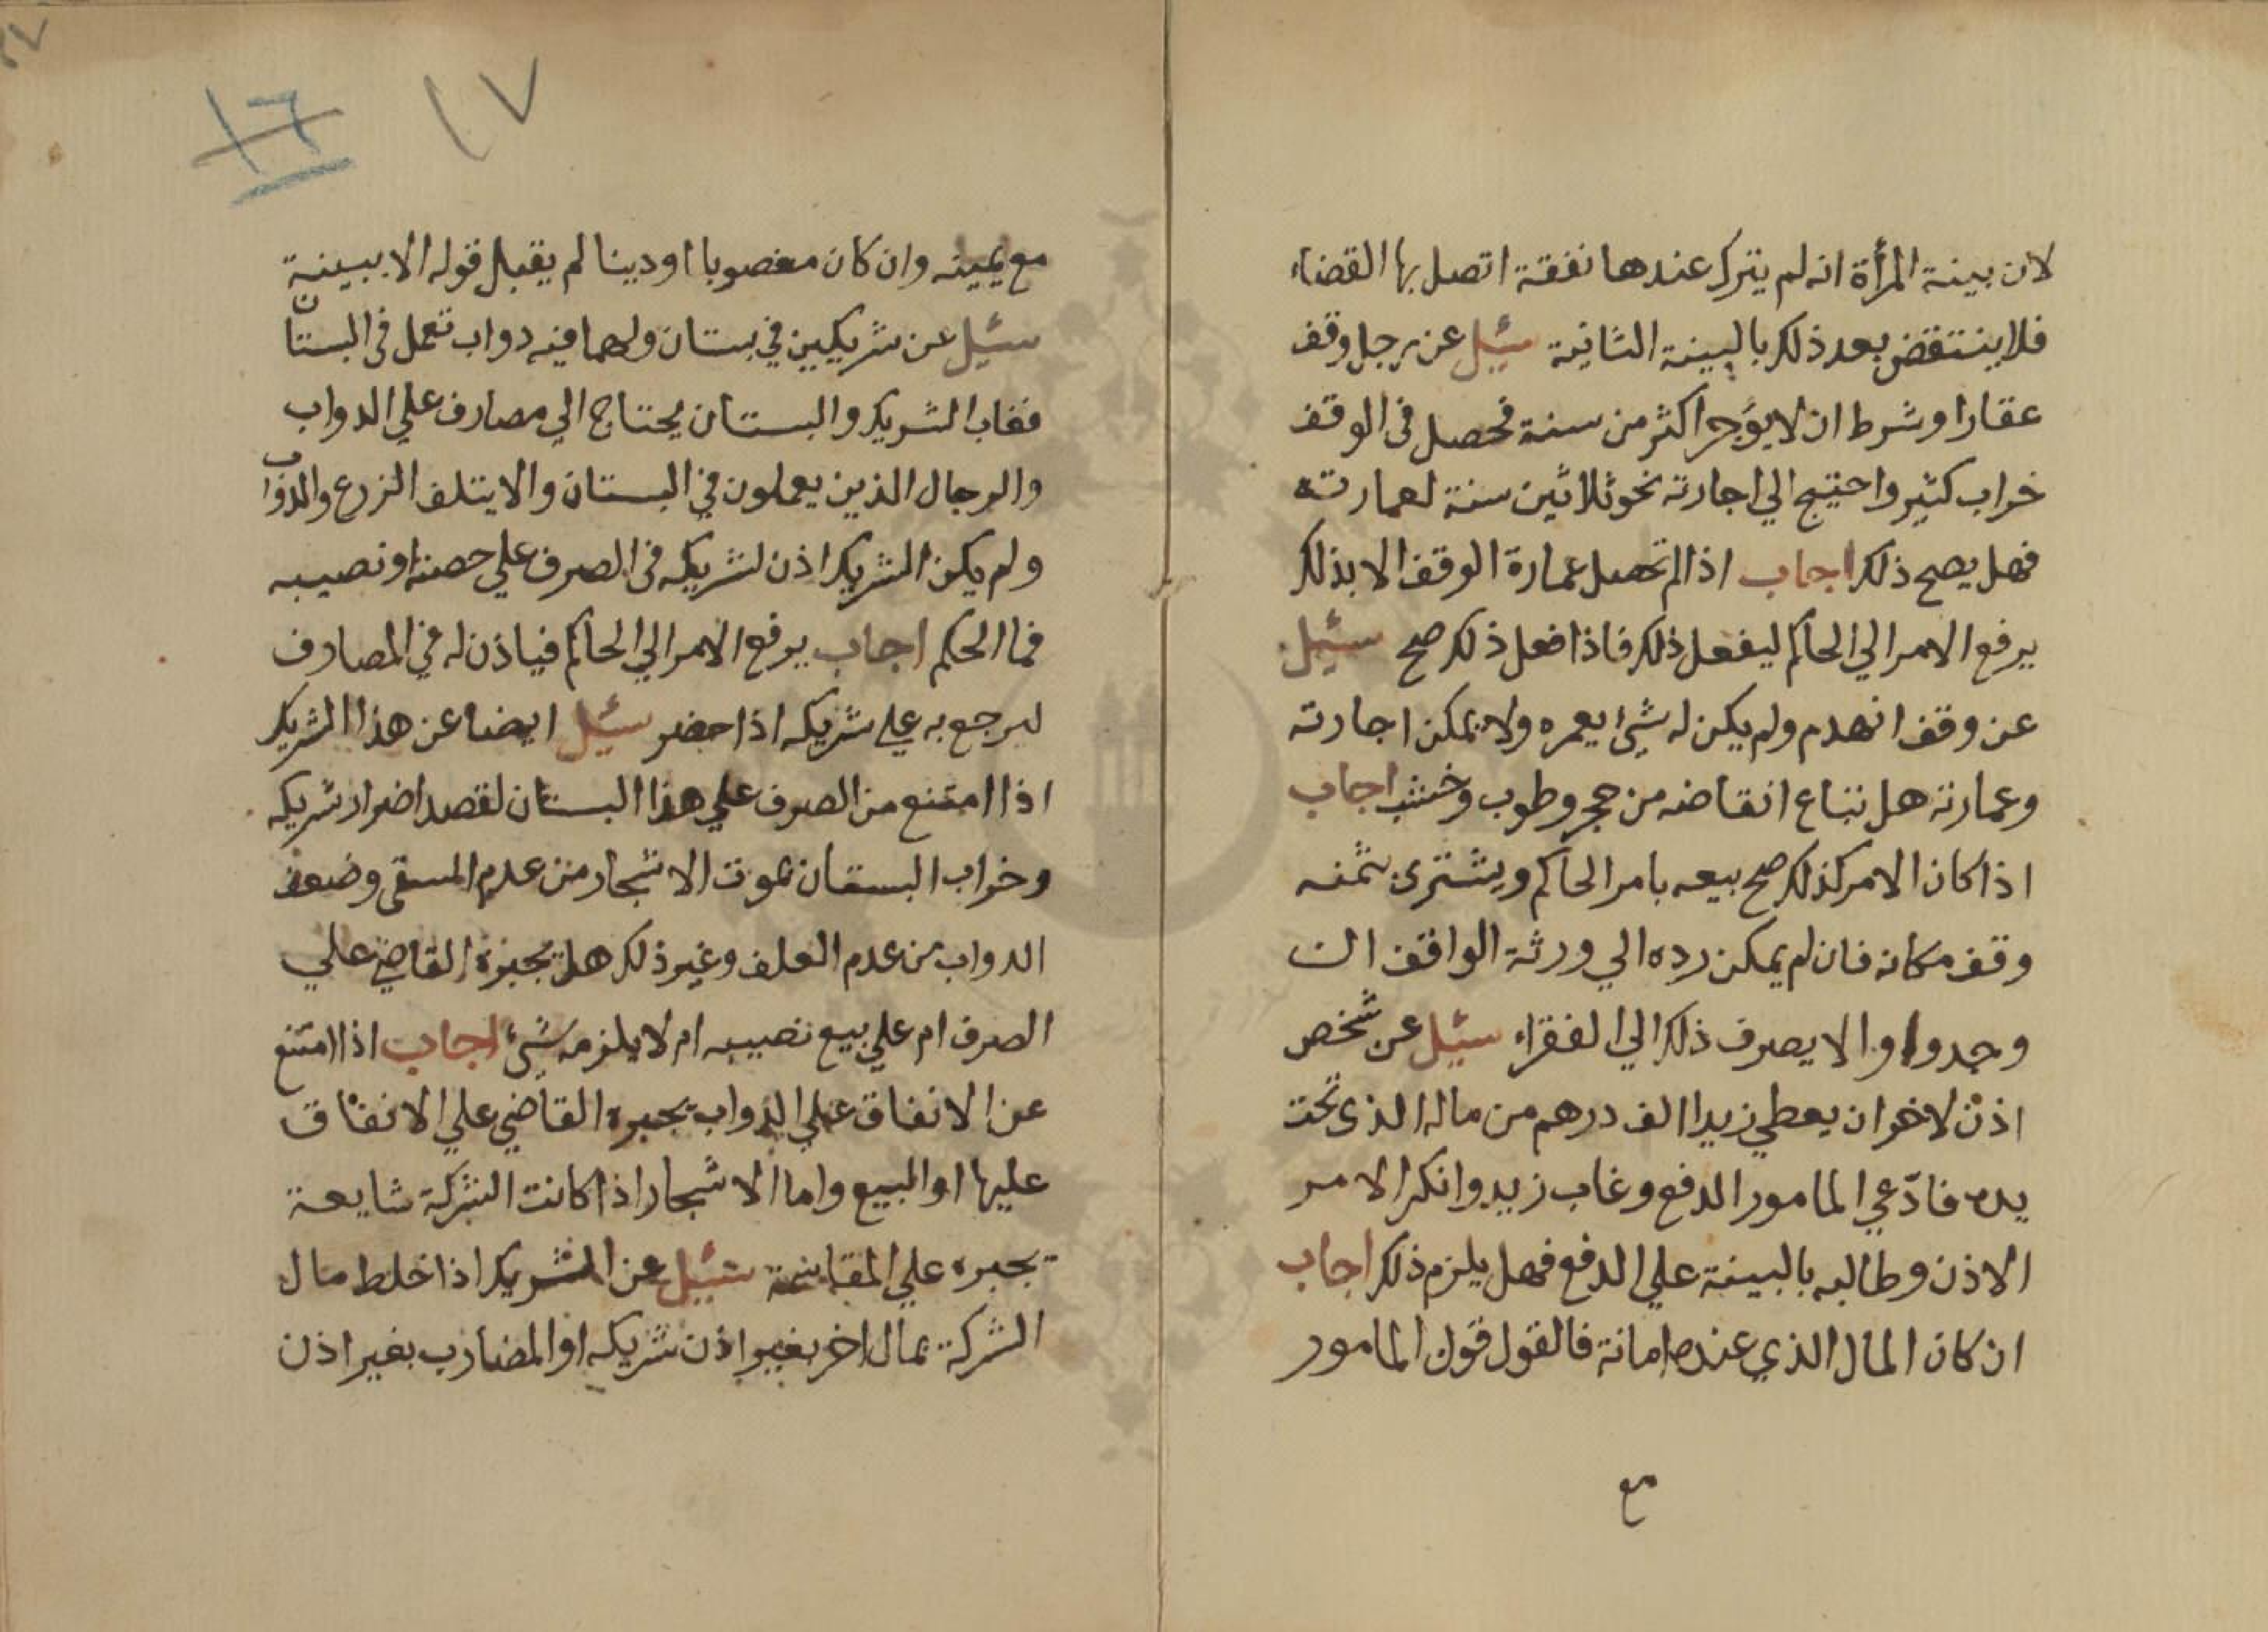 لان بينة المرأة انه لم يترك عندها نفقة اتصل بها القضاء
فلا ينتقض بعد ذلك بالبينة الثانية سئيل عن رجل وقف
عقارا وشرط ان لا يؤجر اكثر من سنة فحصل في الوقف
خراب كثير واحتيج الي اجارته نحو ثلاثين سنة لعمارته
فهل يصح ذلك اجاب اذا لم تحصل عمارة الوقف الا بذلك
يرفع الامر الي الحاكم ليفعل ذلك فاذا فعل ذلك صح سئيل
عن وقف انهدم ولم يكن له شيئ يعمره ولا يمكن اجارته
وعمارته هل تباع انقاضه من حجر وطوب وخشب اجاب
اذا كان الامر كذلك صح بيعه بامر الحاكم ويشترى بثمنه
وقف مكانه فان لم يمكن رده الي ورثة الواقف ان
وجدوا والا يصرف ذلك الي الفقراء سئيل عن شخص
اذن لاخر ان يعطي زيدا الف درهم من ماله الذى تحت
يده فادّعي المامور الدفع وغاب زيد وانكر الامر
الاذن وطالبه بالبينة علي الدفع فهل يلزم ذلك اجاب
ان كان المال الذي عنده امانة فالقول قول المامور
مع
١٧
١٦
مع يمينه وان كان مغصوبا او دينا لم يقبل قوله الا ببينة
سئيل عن شريكين في بستان ولهما فيه دواب تعمل في البستان
فغاب الشريك والبستان يحتاج الي مصارف علي الدواب
والرجال الذين يعملون في البستان والا يتلف الزرع والدواب
ولم يكن الشريك اذن لشريكه في الصرف علي حصته او نصيبه
فما الحكم اجاب يرفع الامر الي الحاكم فياذن له في المصارف
ليرجع به علي شريكه اذا حضر سئيل ايضا عن هذا الشريك
اذا امتنع من الصرف علي هذا البستان لقصد اضرار شريكه
وخراب البستان بموت الاشجار من عدم السقى وضعف
الدواب من عدم العلف وغير ذلك هل يجبره القاضي علي
الصرف ام علي بيع نصيبه ام لا يلزمه شيئ اجاب اذا امتنع
عن الانفاق علي الدواب يجبره القاضي علي الانفاق
عليها او البيع واما الاشجار اذا كانت الشركة شايعة
يجبره علي المقاسمة سئيل عن الشريك اذا خلط مال
الشركة بمال اخر بغير اذن شريكه او المضارب بغير اذن